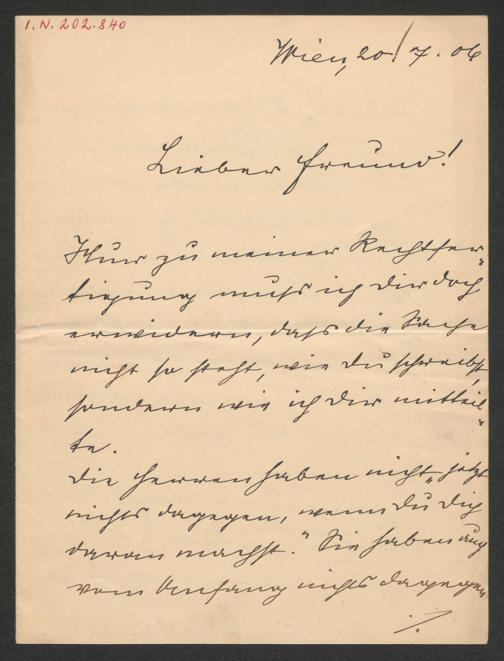 I.N. 202.840
Wien, 20/7. 06
Lieber Freund!
Nur zu meiner Rechtfer-
tigung muß ich Dir doch
erwidern, daß die Sache
nicht so steht, wie Du schreibst,
sondern wie ich Dir mitteil-
te.
Die Herren haben nicht „jetzt
nichts dagegen, wenn Du Dich
daran machst." Sie haben auch
vom Anfang nichts dagegen
./.